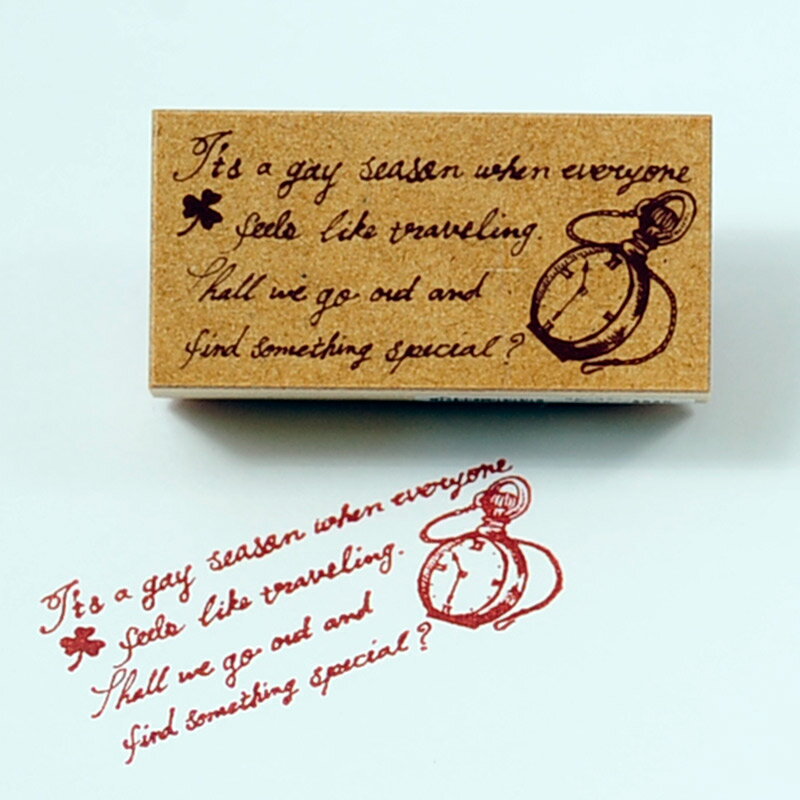 It's a gay season when everyone
feels like traveling.
Shall we go out and
find something special?
It's a gay season when everyone
feels like traveling.
Shall we go out and
find something special?